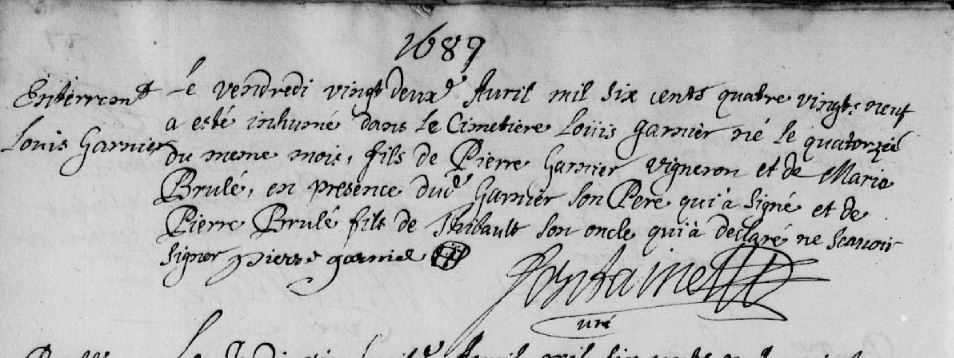 1689
Enterremt
Louis Garnier
Le vendredi vingt deuxe Avril mil six cents quatre vingts neuf
a esté inhumé dans Le Cimetiere Loüis garnier né le quatorzie
du meme mois, fils de Pierre Garnier vigneron et de Marie
Brulé, en presence dud Garnier son Pere qui à signé et de
Pierre Brulé fils de Thibault son oncle qui à declaré ne scavoir
signer pierre garnier
Fontaine
curé